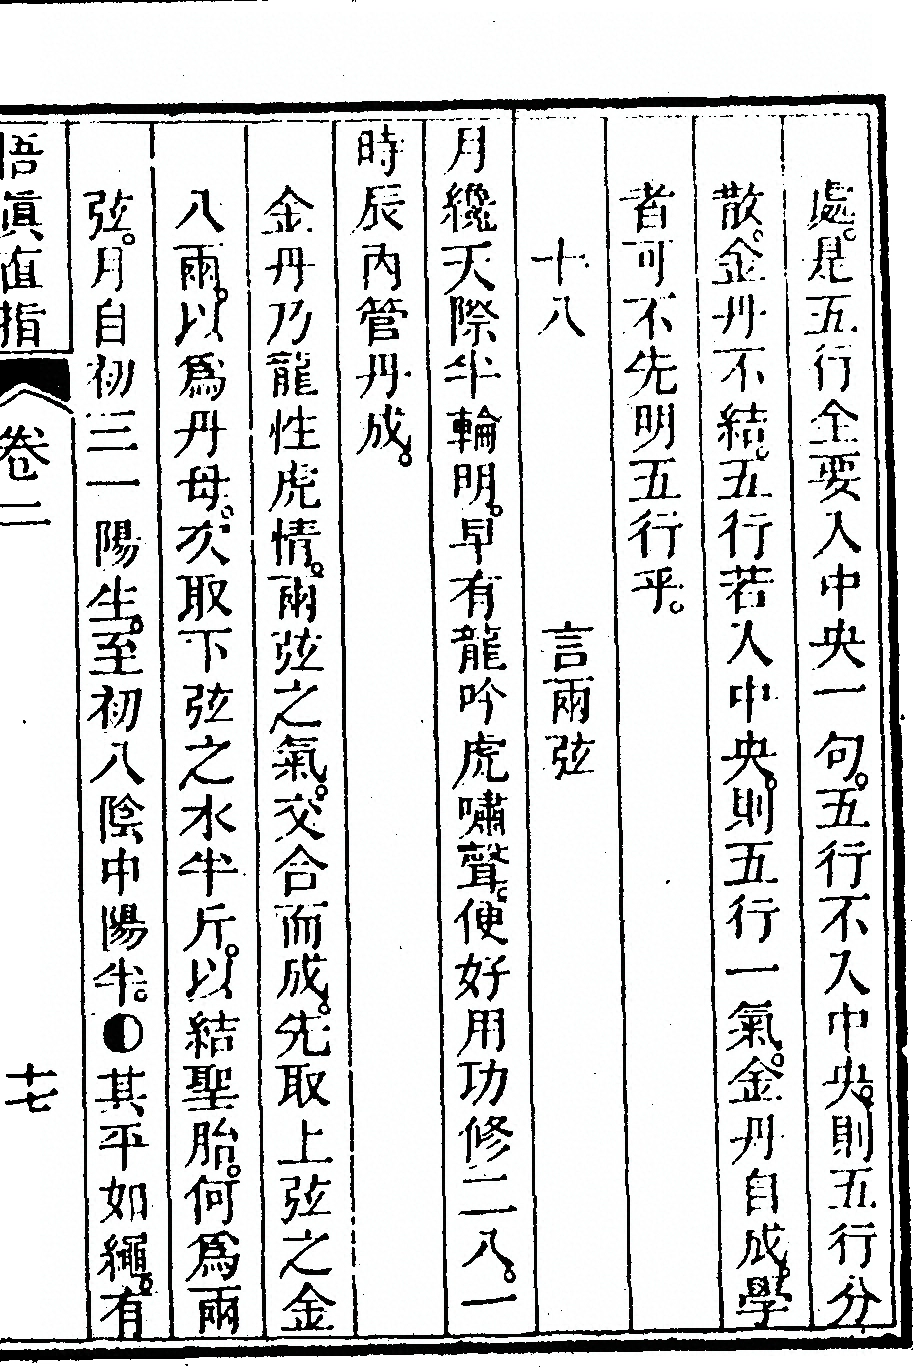 處。是五行全要入中央一句。五行不入中央。則五行分
散。金丹不結。五行若入中央。則五行一氣。金丹自成。學
者可不先明五行乎。
十八　言兩弦
月纔天際半輪明。早有龍吟虎嘯聲。便好用功修二八。一
時辰內管丹成。
金丹乃龍性虎情。兩弦之氣。交合而成。先取上弦之金
八兩。以爲丹母。次取下弦之水半斤。以結聖胎。何爲兩
弦。月自初三一陽生。至初八陰中陽半。◐其平如繩。有
悟眞直指　卷二　十七